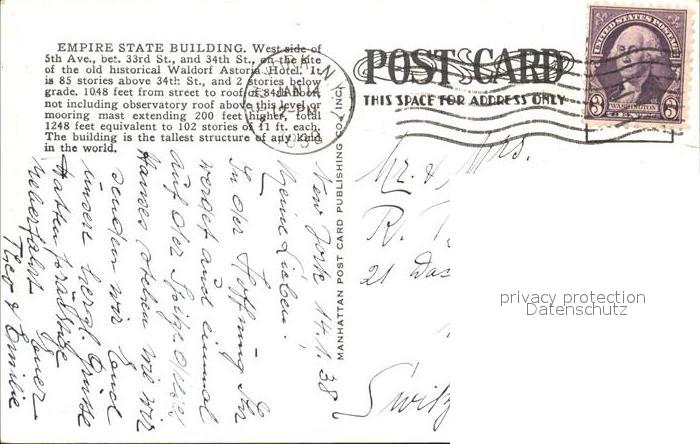 EMPIRE STATE BUILDING. West side of
5th Ave., bet. 33rd St., and 34th St., on the site
of the old historical Waldorf Astoria Hotel. It
is 85 stories above 34th St., and 2 stories below
grade. 1048 feet from street to roof of 84th floor
not including observatory roof above this level or
mooring mast extending 200 feet higher, total
1248 feet equivalent to 102 stories of 11 ft. each.
The building is the tallest structure of any kind
in the world.
POST CARD
THIS SPACE FOR ADDRESS ONLY
UNITED STATES POSTAGE
3 WASHINGTON 3
JAN 14
MANHATTAN POST CARD PUBLISHING CO., INC.
New York 14.1.38
Meine Lieben!
In der Hoffnung Ihr
werdet auch einmal
auf der Spitze dieses
Hauses stehen wie wir
senden wir Euch
unsere herzl. Grüsse
Hatten prächtige
Ueberfahrt Euer
Theo & Emilie
Mr. & Mrs.
R.
21
Switz
privacy protection
Datenschutz